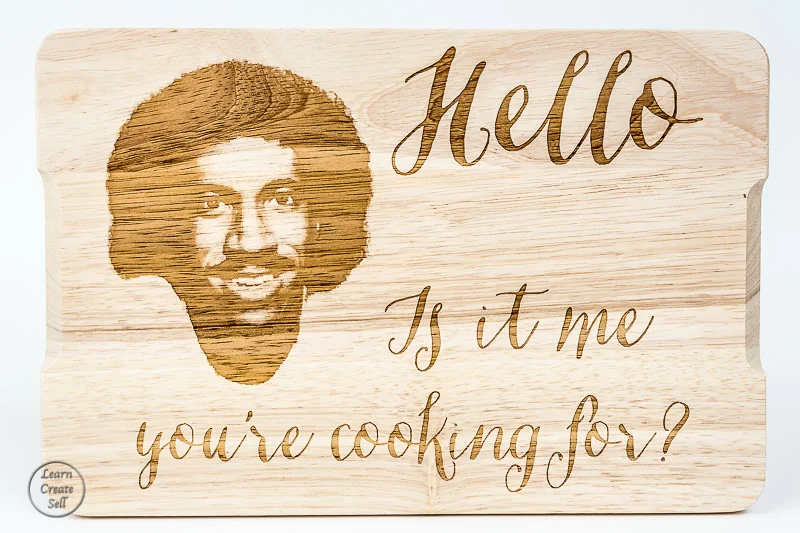 Hello
Is it me
you're cooking for?
Learn
Create
Sell